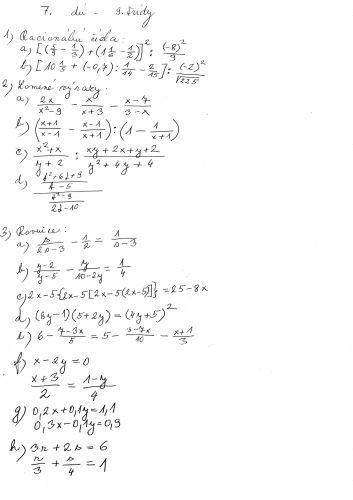 7. dú - 9. třídy
1) Racionální čísla:
a) [(3/4 - 1/3) + (1 1/2 - 1/2)]² : (-8)²/9
b) [10 1/5 + (-0,7) : 1/14 - 2/15] : (-2)²/√225
2) Lomené výrazy:
a) 2x/(x²-9) - x/(x+3) - (x-4)/(3-x)
b) ((x+1)/(x-1) - (x-1)/(x+1)) : (1 - 1/(x+1))
c) (x²+x)/(y+2) : (xy+2x+y+2)/(y²+4y+4)
d) ((d²+6d+9)/(d-5)) / ((d²-9)/(2d-10))
3) Rovnice:
a) s/(2s-3) - 1/2 = 1/(s-3)
b) (y-2)/(y-5) - y/(10-2y) = 1/4
c) 2x-5{2x-5[2x-5(2x-5)]} = 25-8x
d) (8y-1)(5+2y) = (4y+5)²
e) 6 - (7-3x)/5 = 5 - (3-7x)/10 - (x+1)/3
f) x-2y=0
(x+3)/2 = (1-y)/4
g) 0,2x+0,1y=1,1
0,3x-0,1y=0,9
h) 3r+2s=6
r/3 + s/4 = 1